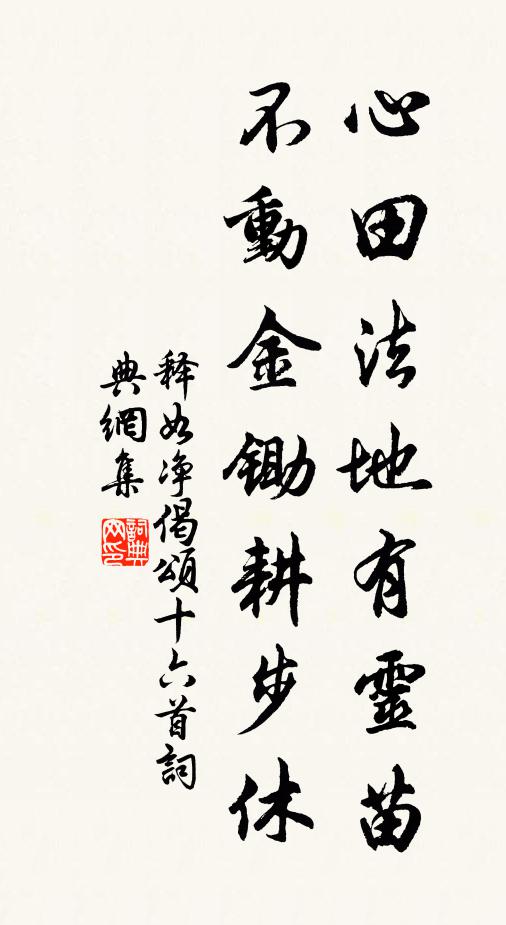 心田法地有靈苗
不動金鋤耕步休
释如净偈頌十六首詞
典網集
詞典
网印